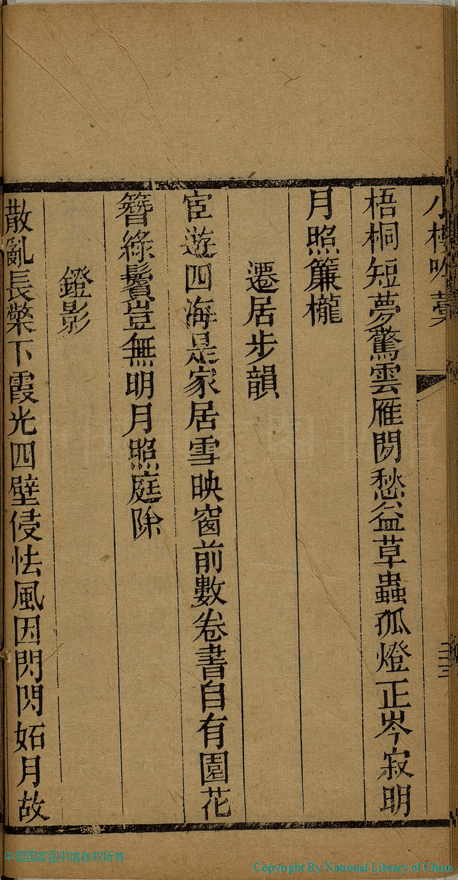 小樓吟藁
梧桐短夢驚雲雁閉愁益草蟲孤燈正岑寂明
月照簾櫳
遷居步韻
宦遊四海是家居雪映窗前數卷書自有園花
簪綠鬢豈無明月照庭除
鐙影
散亂長檠下霞光四壁侵怯風因閃閃妬月故
Copyright By National Library of China